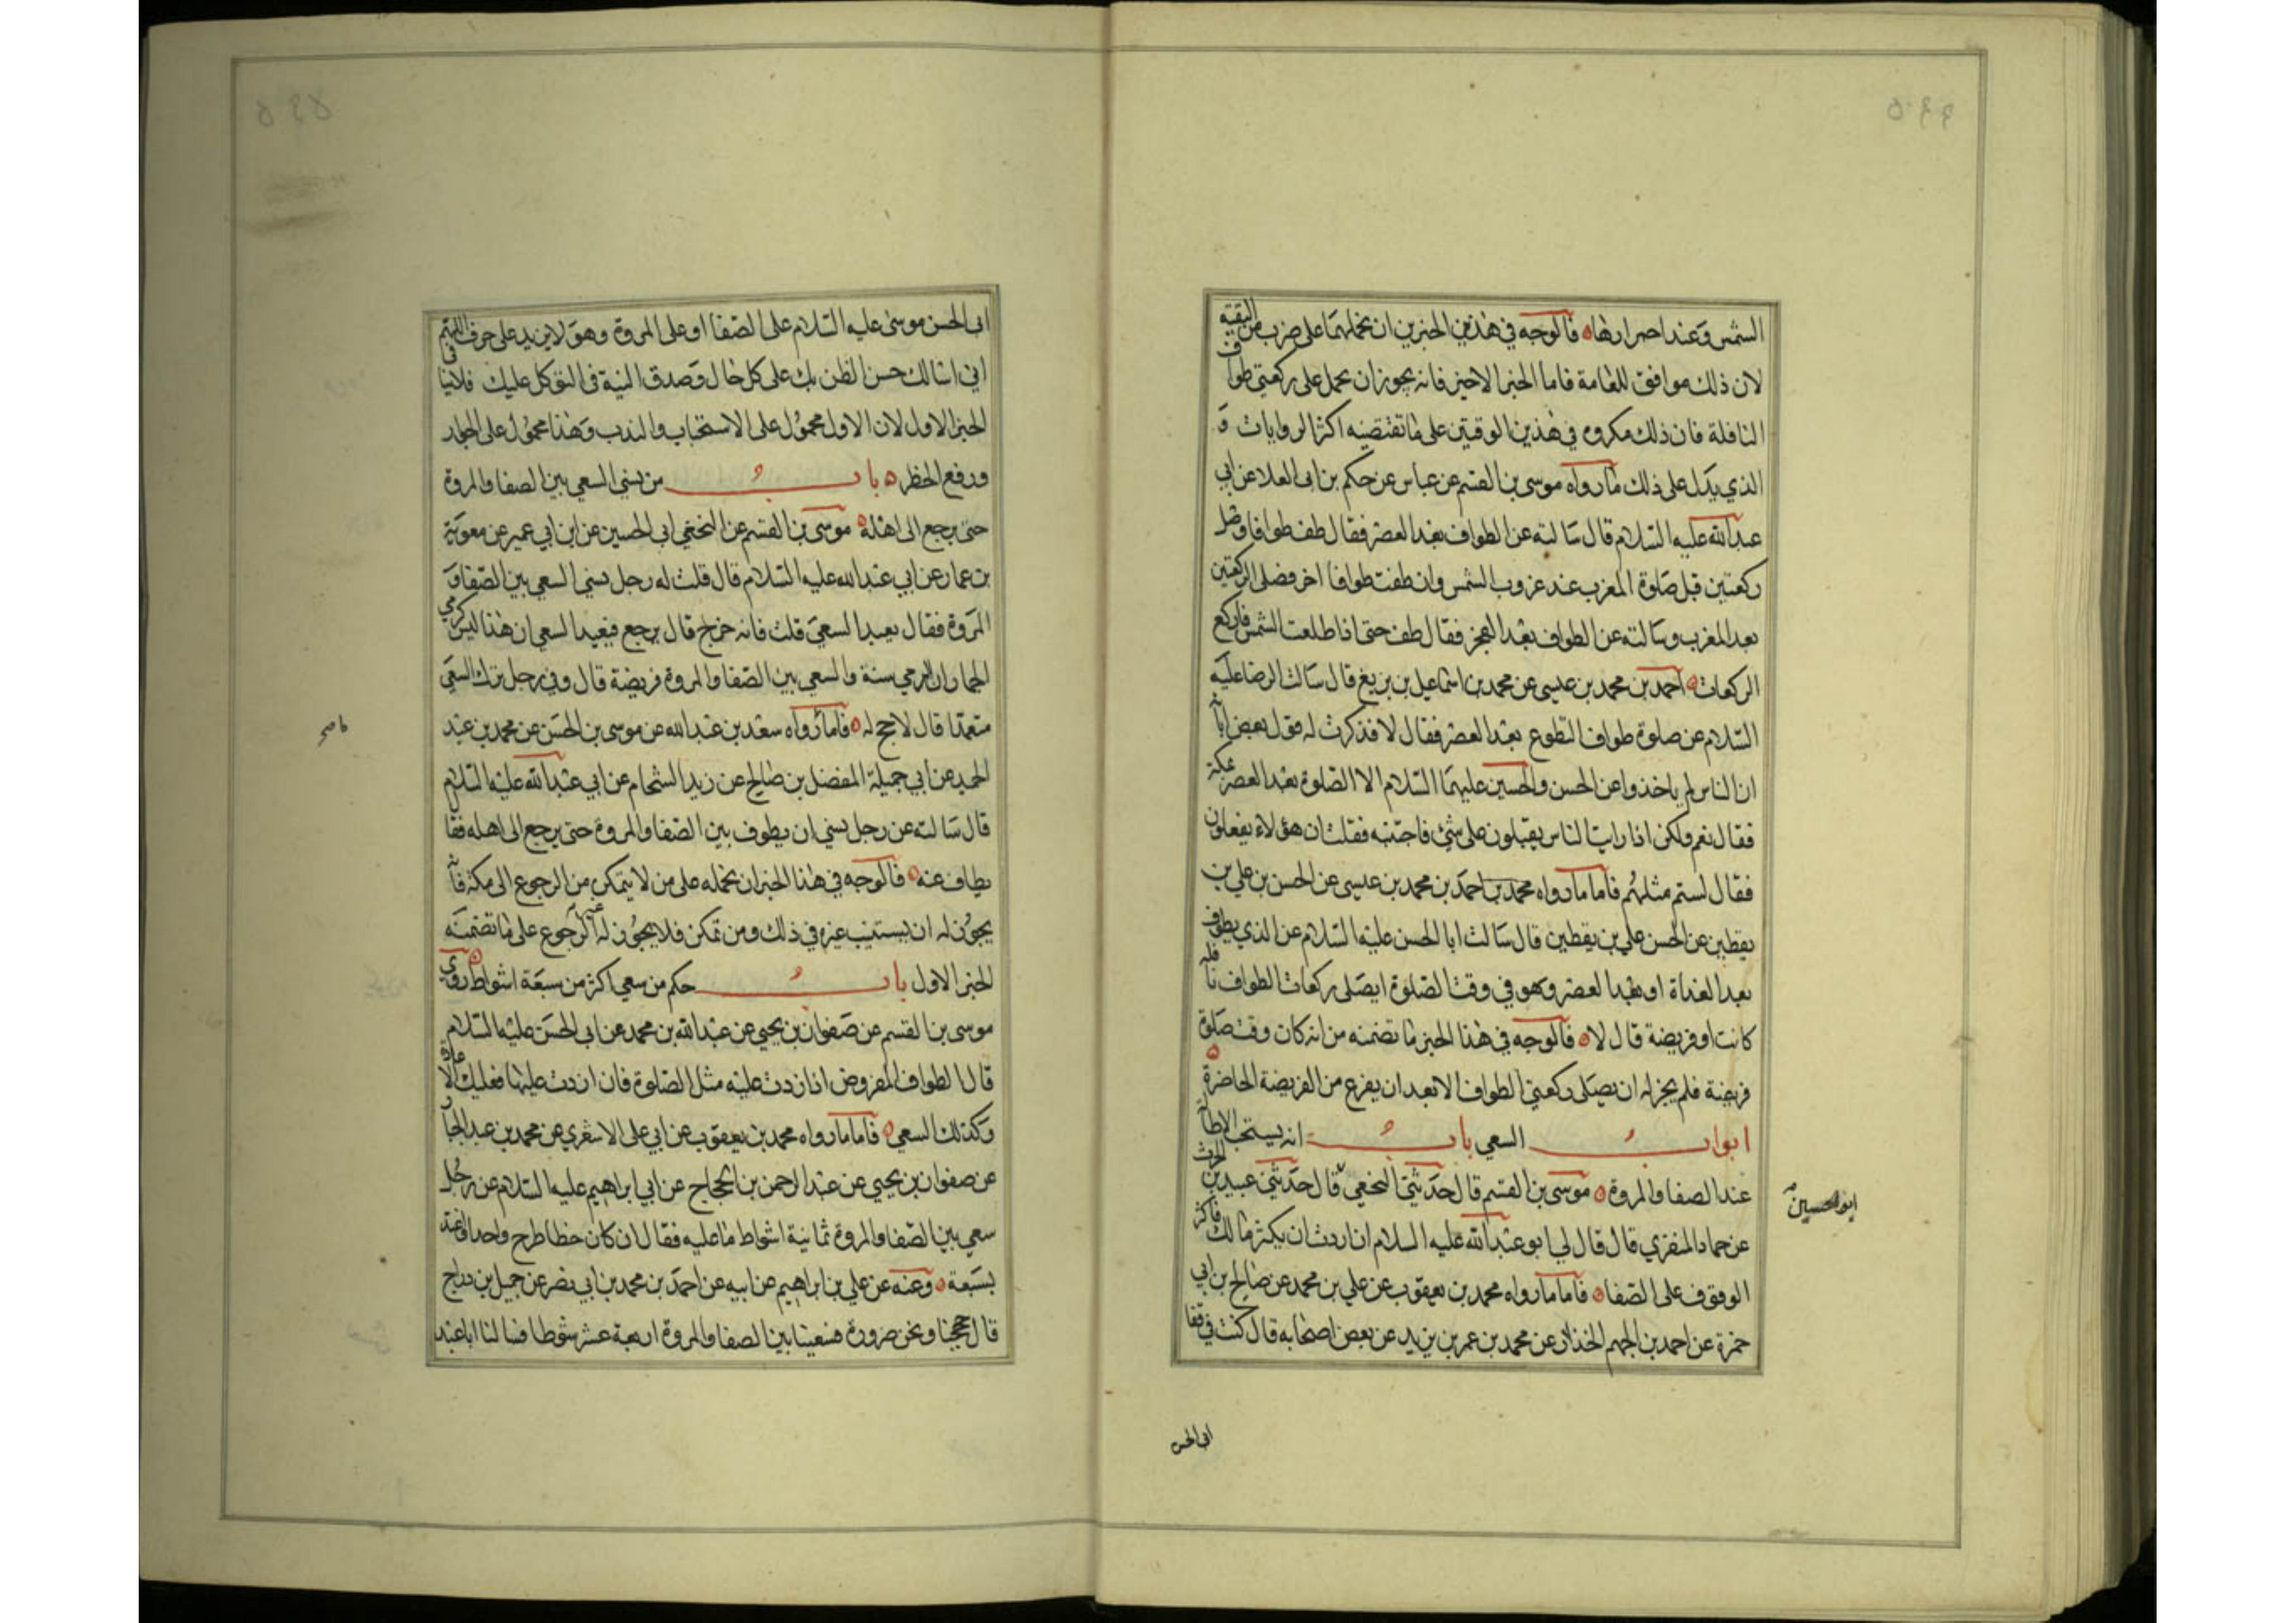 الشمس وعند احمرارها فالوجه في هذين الخبرين ان نحملهما على ضرب من التقية
لان ذلك موافق للعامة فاما الخبر الاخير فانه يجوز ان يحمل على ركعتي طواف
النافلة فان ذلك مكروه في هذين الوقتين على ما تقتضيه اكثر الروايات و
الذي يدل على ذلك ما رواه موسى بن القسم عن عباس عن حكم بن ابى العلا عن ابي
عبد الله عليه السلام قال سالته عن الطواف بعد العصر فقال طف طوافا وصل
ركعتين قبل صلوة المغرب عند غروب الشمس وان طفت طوافا اخر فصل الركعتين
بعد المغرب وسالته عن الطواف بعد الفجر فقال طف حتى اذا طلعت الشمس فاركع
الركعات احمد بن محمد بن عيسى عن محمد بن اسماعيل بن بزيع قال سالت الرضا عليه
السلام عن صلوة طواف التطوع بعد العصر فقال لا فذكرت له قول بعض ابائه
ان الناس لم ياخذوا عن الحسن والحسين عليهما السلام الا الصلوة بعد العصر بمكة
فقال نعم ولكن اذا رايت الناس يقبلون على شئ فاجتنبه فقلت ان هؤلاء يفعلون
فقال لستم مثلهم فاما ما رواه محمد بن احمد بن محمد بن عيسى عن الحسن بن علي بن
يقطين عن الحسن علي بن يقطين قال سالت ابا الحسن عليه السلام عن الذي يطوف
بعد الغداة او بعد العصر وهو في وقت الصلوة ايصلى ركعات الطواف نافلة
كانت او فريضة قال لا فالوجه في هذا الخبر ما تضمنه من انه كان وقت صلوة
فريضة فلم يجز له ان يصلى ركعتي الطواف الا بعد ان يفرغ من الفريضة الحاضرة
ابواب السعي باب انه يستحب الاطالة
عند الصفا والمروة موسى بن القسم قال حدثنى النخعي قال حدثنى عبيد بن الحرث
ابو الحسين
عن حماد المنقري قال قال لي ابو عبد الله عليه السلام ان اردت ان يكثر مالك فاكثر
الوقوف على الصفا فاما ما رواه محمد بن يعقوب عن علي بن محمد عن صالح بن ابي
حمزة عن احمد بن الجهم الخذاز عن محمد بن عمر بن يزيد عن بعض اصحابه قال كنت في قفا
ابى الحسن
ابى الحسن موسى عليه السلام على الصفا او على المروة وهو لا يزيد على حرفين اللهم
اني اسالك حسن الظن بك على كل حال وصدق النية في التوكل عليك فلا ينافى
الخبر الاول لان الاول محمول على الاستحباب والندب وهذا محمول على الجواز
ورفع الحظر باب من نسي السعي بين الصفا والمروة
حتى يرجع الى اهله موسى بن القسم عن النخعي ابى الحسين عن ابن ابي عمير عن معوية
بن عمار عن ابي عبد الله عليه السلام قال قلت له رجل نسي السعي بين الصفا و
المروة فقال يعيد السعي قلت فانه خرج قال يرجع فيعيد السعي ان هذا ليس كرمي
الجمار ان الرمي سنة والسعي بين الصفا والمروة فريضة قال وفي رجل ترك السعي
متعمدا قال لا حج له فاما رواه سعد بن عبد الله عن موسى بن الحسن عن محمد بن عبد
الحميد عن ابي جميلة المفضل بن صالح عن زيد الشحام عن ابي عبد الله عليه السلام
قال سالته عن رجل نسي ان يطوف بين الصفا والمروة حتى يرجع الى اهله فقا
يطاف عنه فالوجه في هذا الخبر ان نحمله على من لا يتمكن من الرجوع الى مكة فانه
يجوز له ان يستنيب غيره في ذلك ومن تمكن فلا يجوز له غير الرجوع على ما تضمنه
الخبر الاول باب حكم من سعى اكثر من سبعة اشواط روى
موسى بن القسم عن صفوان بن يحيى عن عبد الله بن محمد عن ابى الحسن عليه السلام
قال الطواف المفروض اذا زدت عليه مثل الصلوة فان زدت عليها فعليك الاعادة
وكذلك السعي فاما ما رواه محمد بن يعقوب عن ابي على الاشعري عن محمد بن عبد الجبار
عن صفوان بن يحيى عن عبد الرحمن بن الحجاج عن ابي ابراهيم عليه السلام عن رجل
سعى بين الصفا والمروة ثمانية اشواط ما عليه فقال ان كان خطا طرح واحدا واعتد
بسبعة وعنه عن علي بن ابراهيم عن ابيه عن احمد بن محمد بن ابي نصر عن جميل بن دراج
قال حججنا ونحن صرورة فسعينا بين الصفا والمروة اربعة عشر شوطا فسالنا ابا عبد